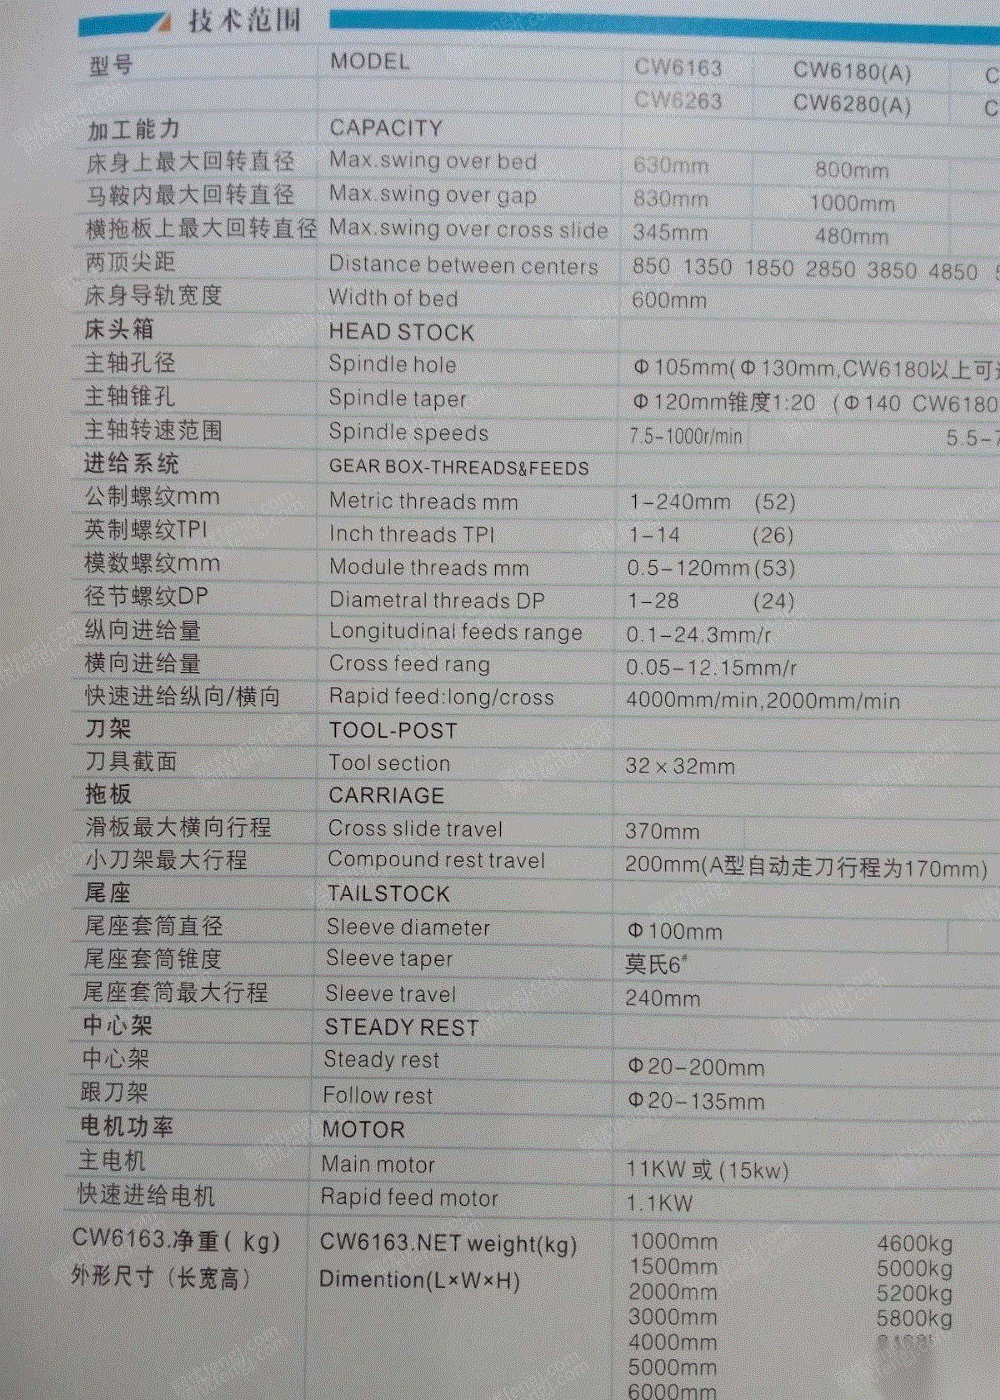 技术范围
型号 MODEL CW6163 CW6180(A) C
CW6263 CW6280(A) C
加工能力 CAPACITY
床身上最大回转直径 Max.swing over bed 630mm 800mm
马鞍内最大回转直径 Max.swing over gap 830mm 1000mm
横拖板上最大回转直径 Max.swing over cross slide 345mm 480mm
两顶尖距 Distance between centers 850 1350 1850 2850 3850 4850
床身导轨宽度 Width of bed 600mm
床头箱 HEAD STOCK
主轴孔径 Spindle hole Φ105mm(Φ130mm,CW6180以上可
主轴锥孔 Spindle taper Φ120mm锥度1:20 (Φ140 CW6180
主轴转速范围 Spindle speeds 7.5-1000r/min 5.5-7
进给系统 GEAR BOX-THREADS&FEEDS
公制螺纹mm Metric threads mm 1-240mm (52)
英制螺纹TPI Inch threads TPI 1-14 (26)
模数螺纹mm Module threads mm 0.5-120mm(53)
径节螺纹DP Diametral threads DP 1-28 (24)
纵向进给量 Longitudinal feeds range 0.1-24.3mm/r
横向进给量 Cross feed rang 0.05-12.15mm/r
快速进给纵向/横向 Rapid feed:long/cross 4000mm/min,2000mm/min
刀架 TOOL-POST
刀具截面 Tool section 32×32mm
拖板 CARRIAGE
滑板最大横向行程 Cross slide travel 370mm
小刀架最大行程 Compound rest travel 200mm(A型自动走刀行程为170mm)
尾座 TAILSTOCK
尾座套筒直径 Sleeve diameter Φ100mm
尾座套筒锥度 Sleeve taper 莫氏6#
尾座套筒最大行程 Sleeve travel 240mm
中心架 STEADY REST
中心架 Steady rest Φ20-200mm
跟刀架 Follow rest Φ20-135mm
电机功率 MOTOR
主电机 Main motor 11KW 或 (15kw)
快速进给电机 Rapid feed motor 1.1KW
CW6163.净重(kg) CW6163.NET weight(kg) 1000mm 4600kg
外形尺寸(长宽高) Dimention(L×W×H) 1500mm 5000kg
2000mm 5200kg
3000mm 5800kg
4000mm
5000mm
6000mm